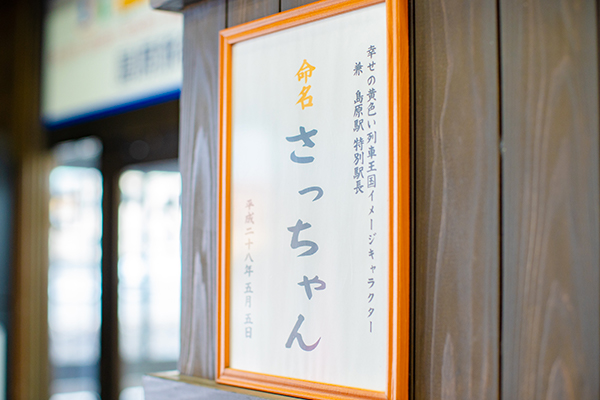 幸せの黄色い列車王国イメージキャラクター
兼 島原駅 特別駅長
命名
さっちゃん
平成二十八年五月五日